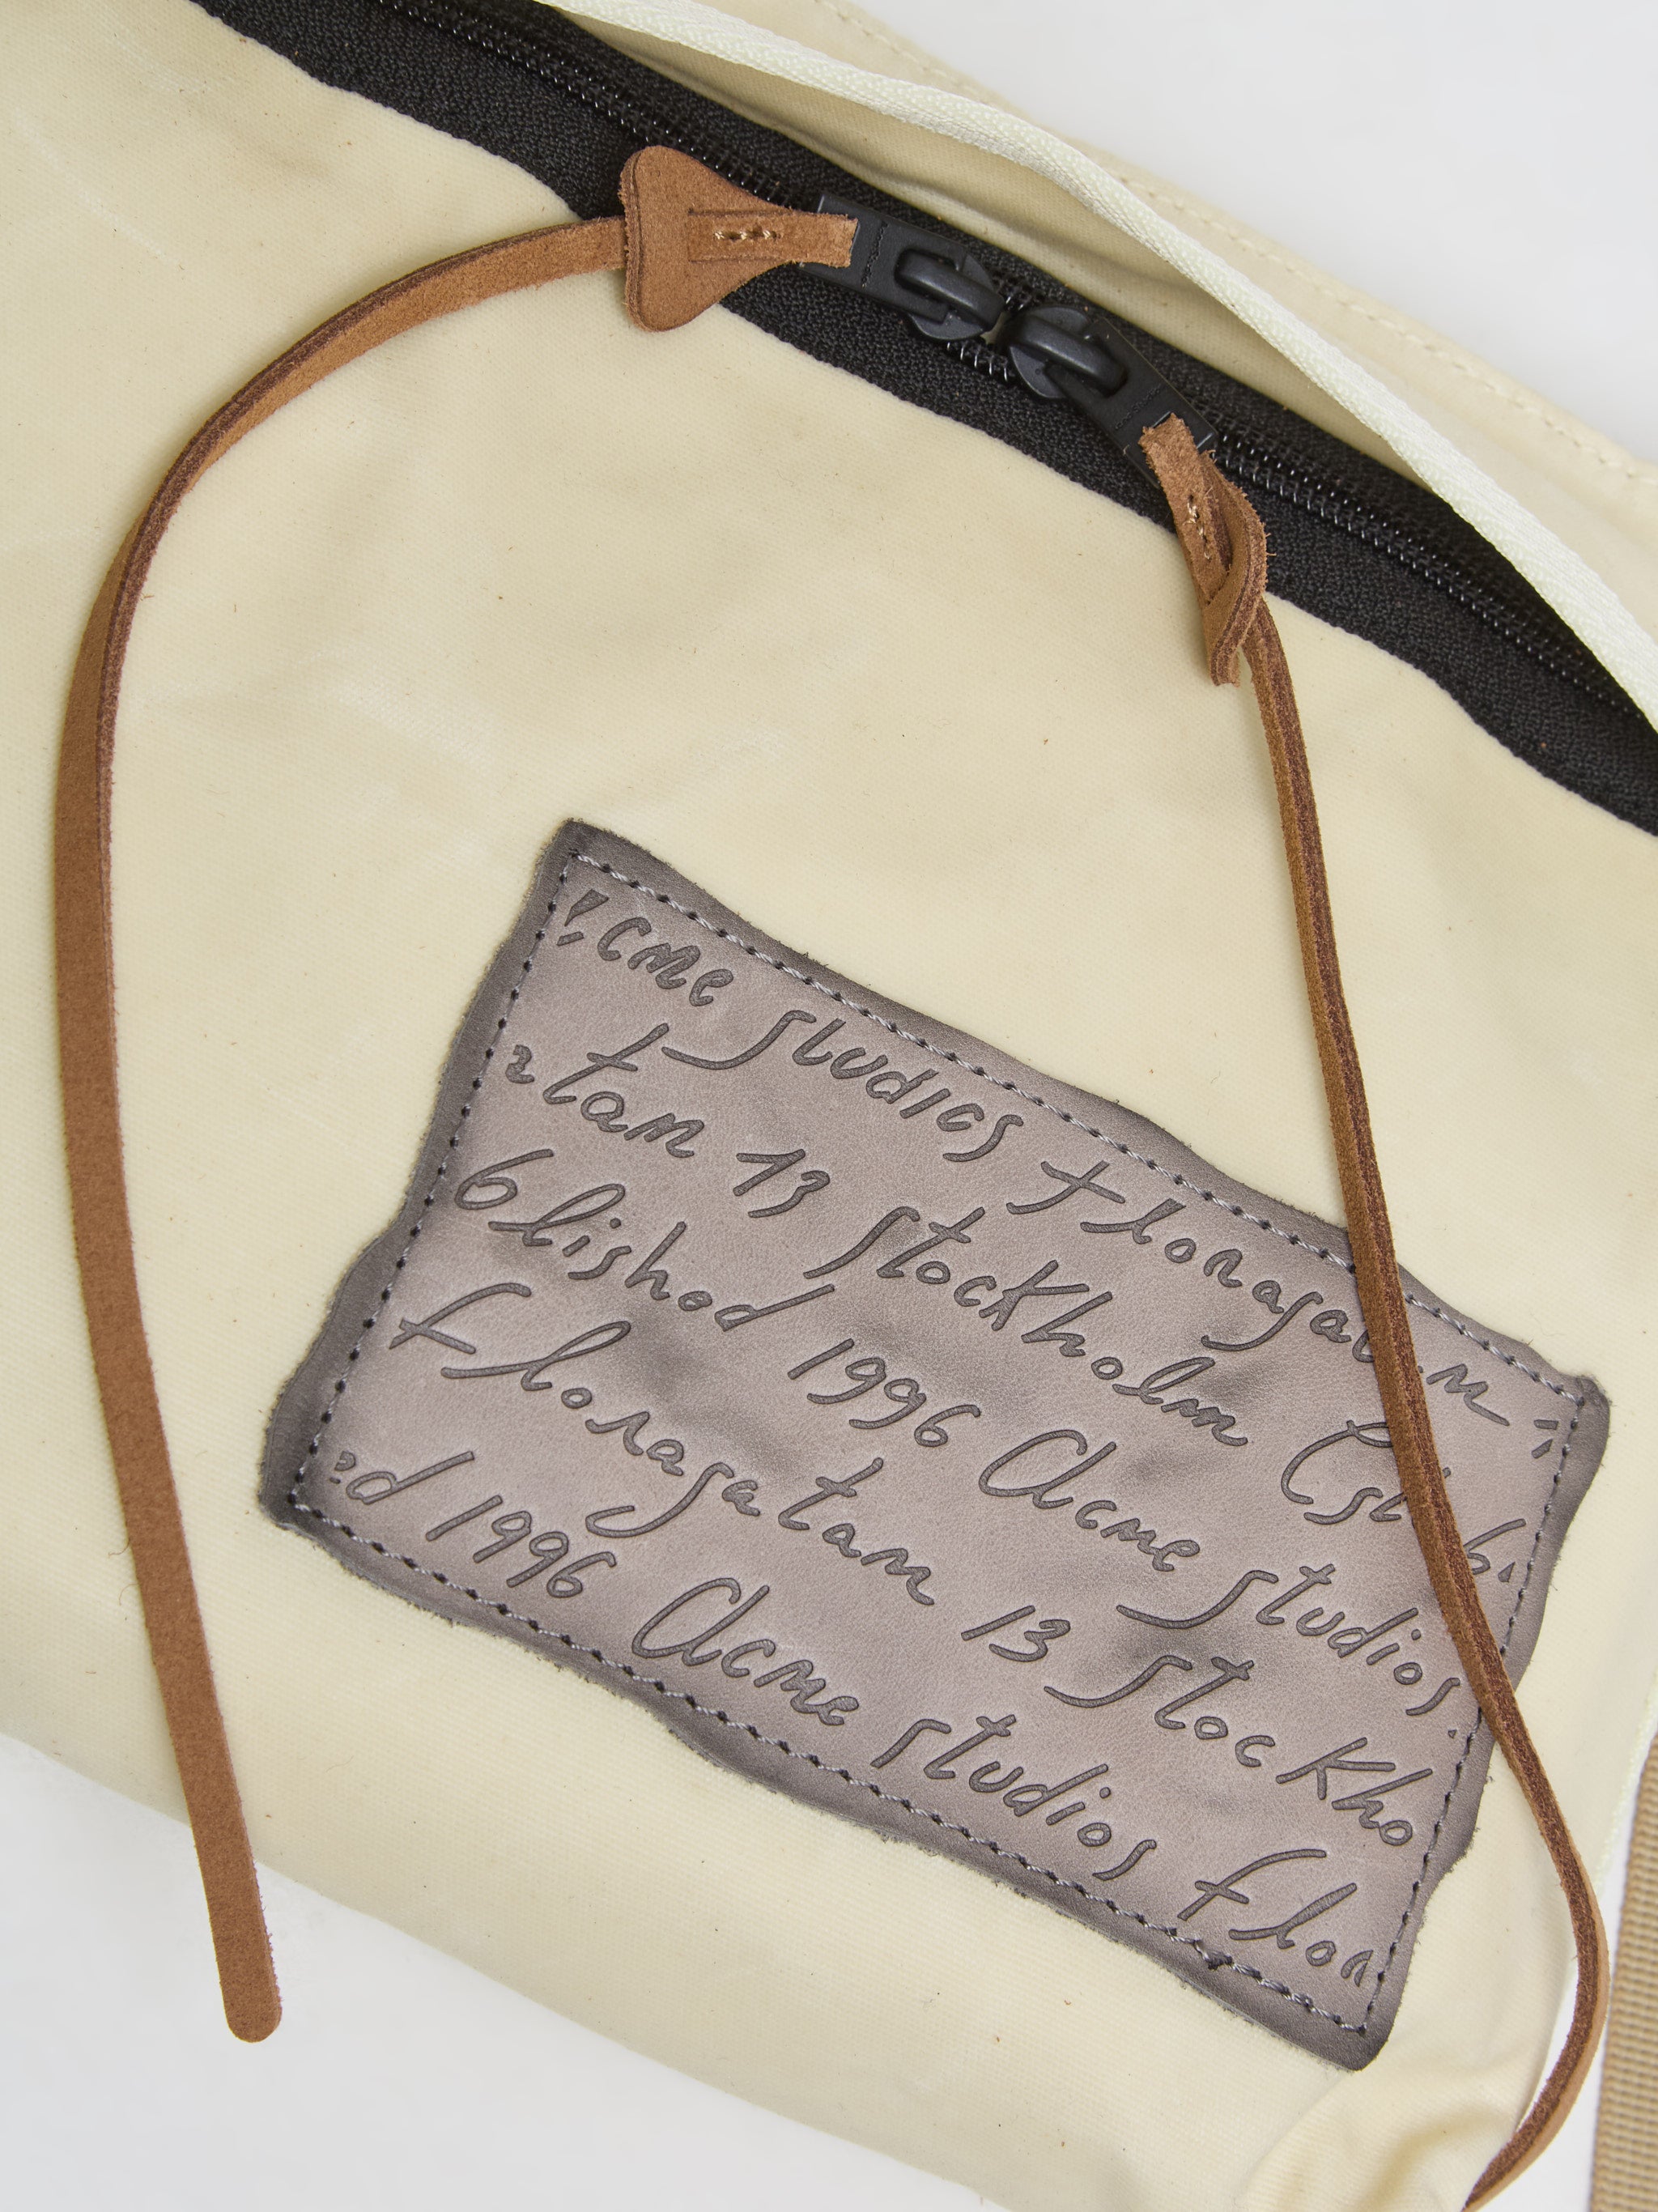 Acme studios floragatan
atan 13 stockholm Estab
blished 1996 Acme studios
floragatan 13 stockho
ed 1996 Acme studios flor